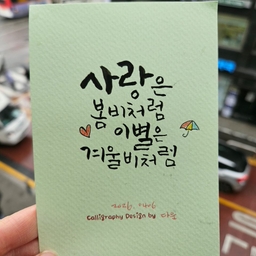 사랑은
봄비처럼
이별은
겨울비처럼
Calligraphy Design by